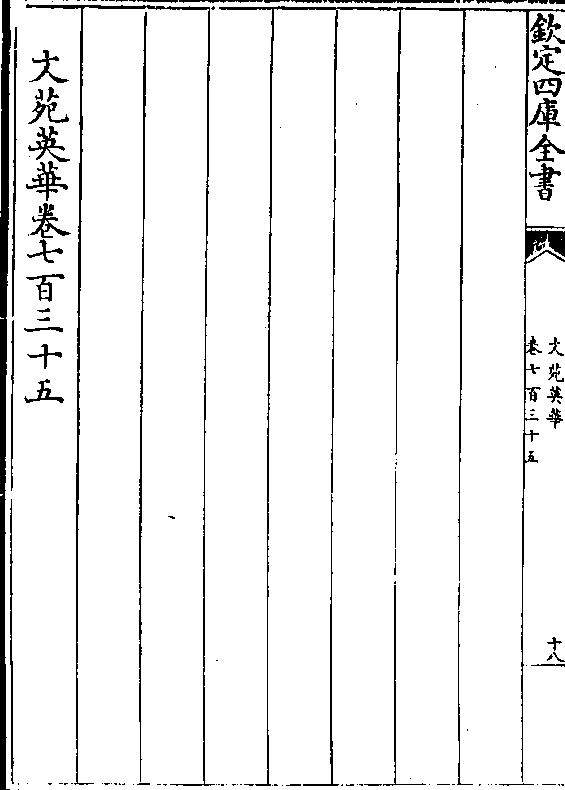 欽定四庫全書
文苑英華
卷七百三十五
十八
文苑英華卷七百三十五